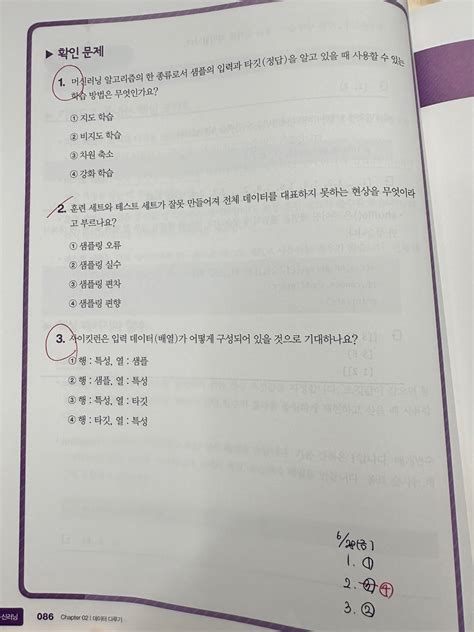 ▶ 확인 문제
1. 머신러닝 알고리즘의 한 종류로서 샘플의 입력과 타깃(정답)을 알고 있을 때 사용할 수 있는
학습 방법은 무엇인가요?
① 지도 학습
② 비지도 학습
③ 차원 축소
④ 강화 학습
2. 훈련 세트와 테스트 세트가 잘못 만들어져 전체 데이터를 대표하지 못하는 현상을 무엇이라
고 부르나요?
① 샘플링 오류
② 샘플링 실수
③ 샘플링 편차
④ 샘플링 편향
3. 사이킷런은 입력 데이터(배열)가 어떻게 구성되어 있을 것으로 기대하나요?
① 행 : 특성, 열 : 샘플
② 행 : 샘플, 열 : 특성
③ 행 : 특성, 열 : 타깃
④ 행 : 타깃, 열 : 특성
1. ①
2. ③ ④
3. ②
086 Chapter 02 | 데이터 다루기